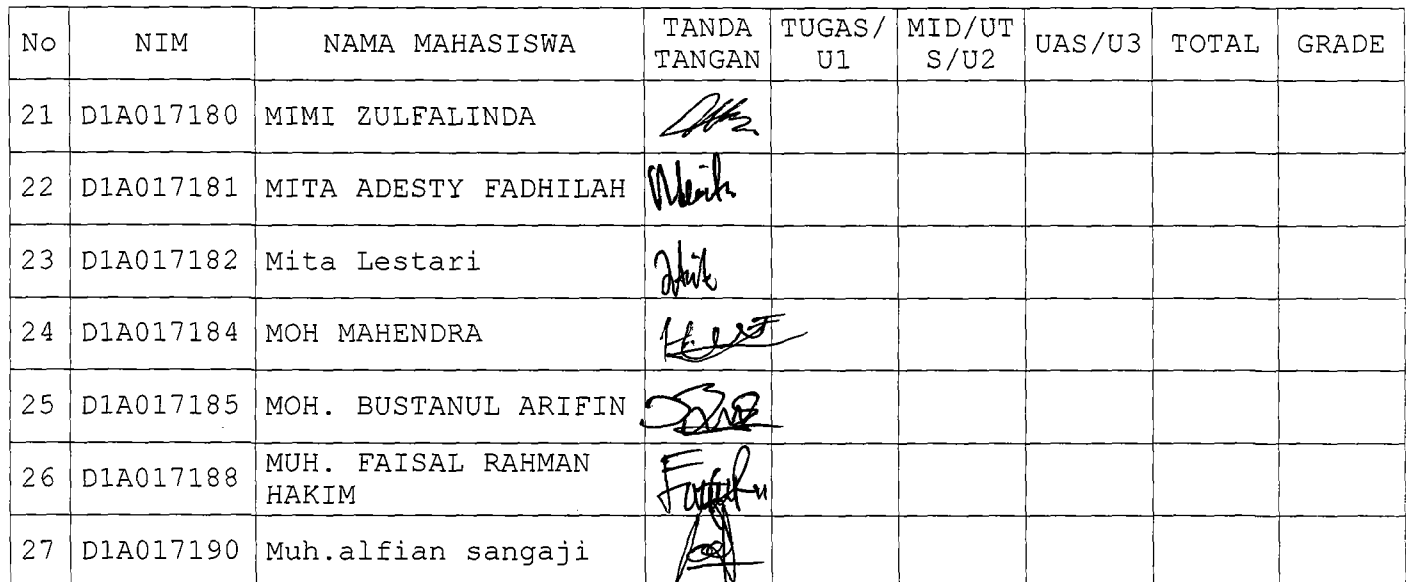 No NIM NAMA MAHASISWA TANDA TANGAN TUGAS/U1 MID/UTS/U2 UAS/U3 TOTAL GRADE
21 D1A017180 MIMI ZULFALINDA
22 D1A017181 MITA ADESTY FADHILAH
23 D1A017182 Mita Lestari
24 D1A017184 MOH MAHENDRA
25 D1A017185 MOH. BUSTANUL ARIFIN
26 D1A017188 MUH. FAISAL RAHMAN
HAKIM
27 D1A017190 Muh.alfian sangaji